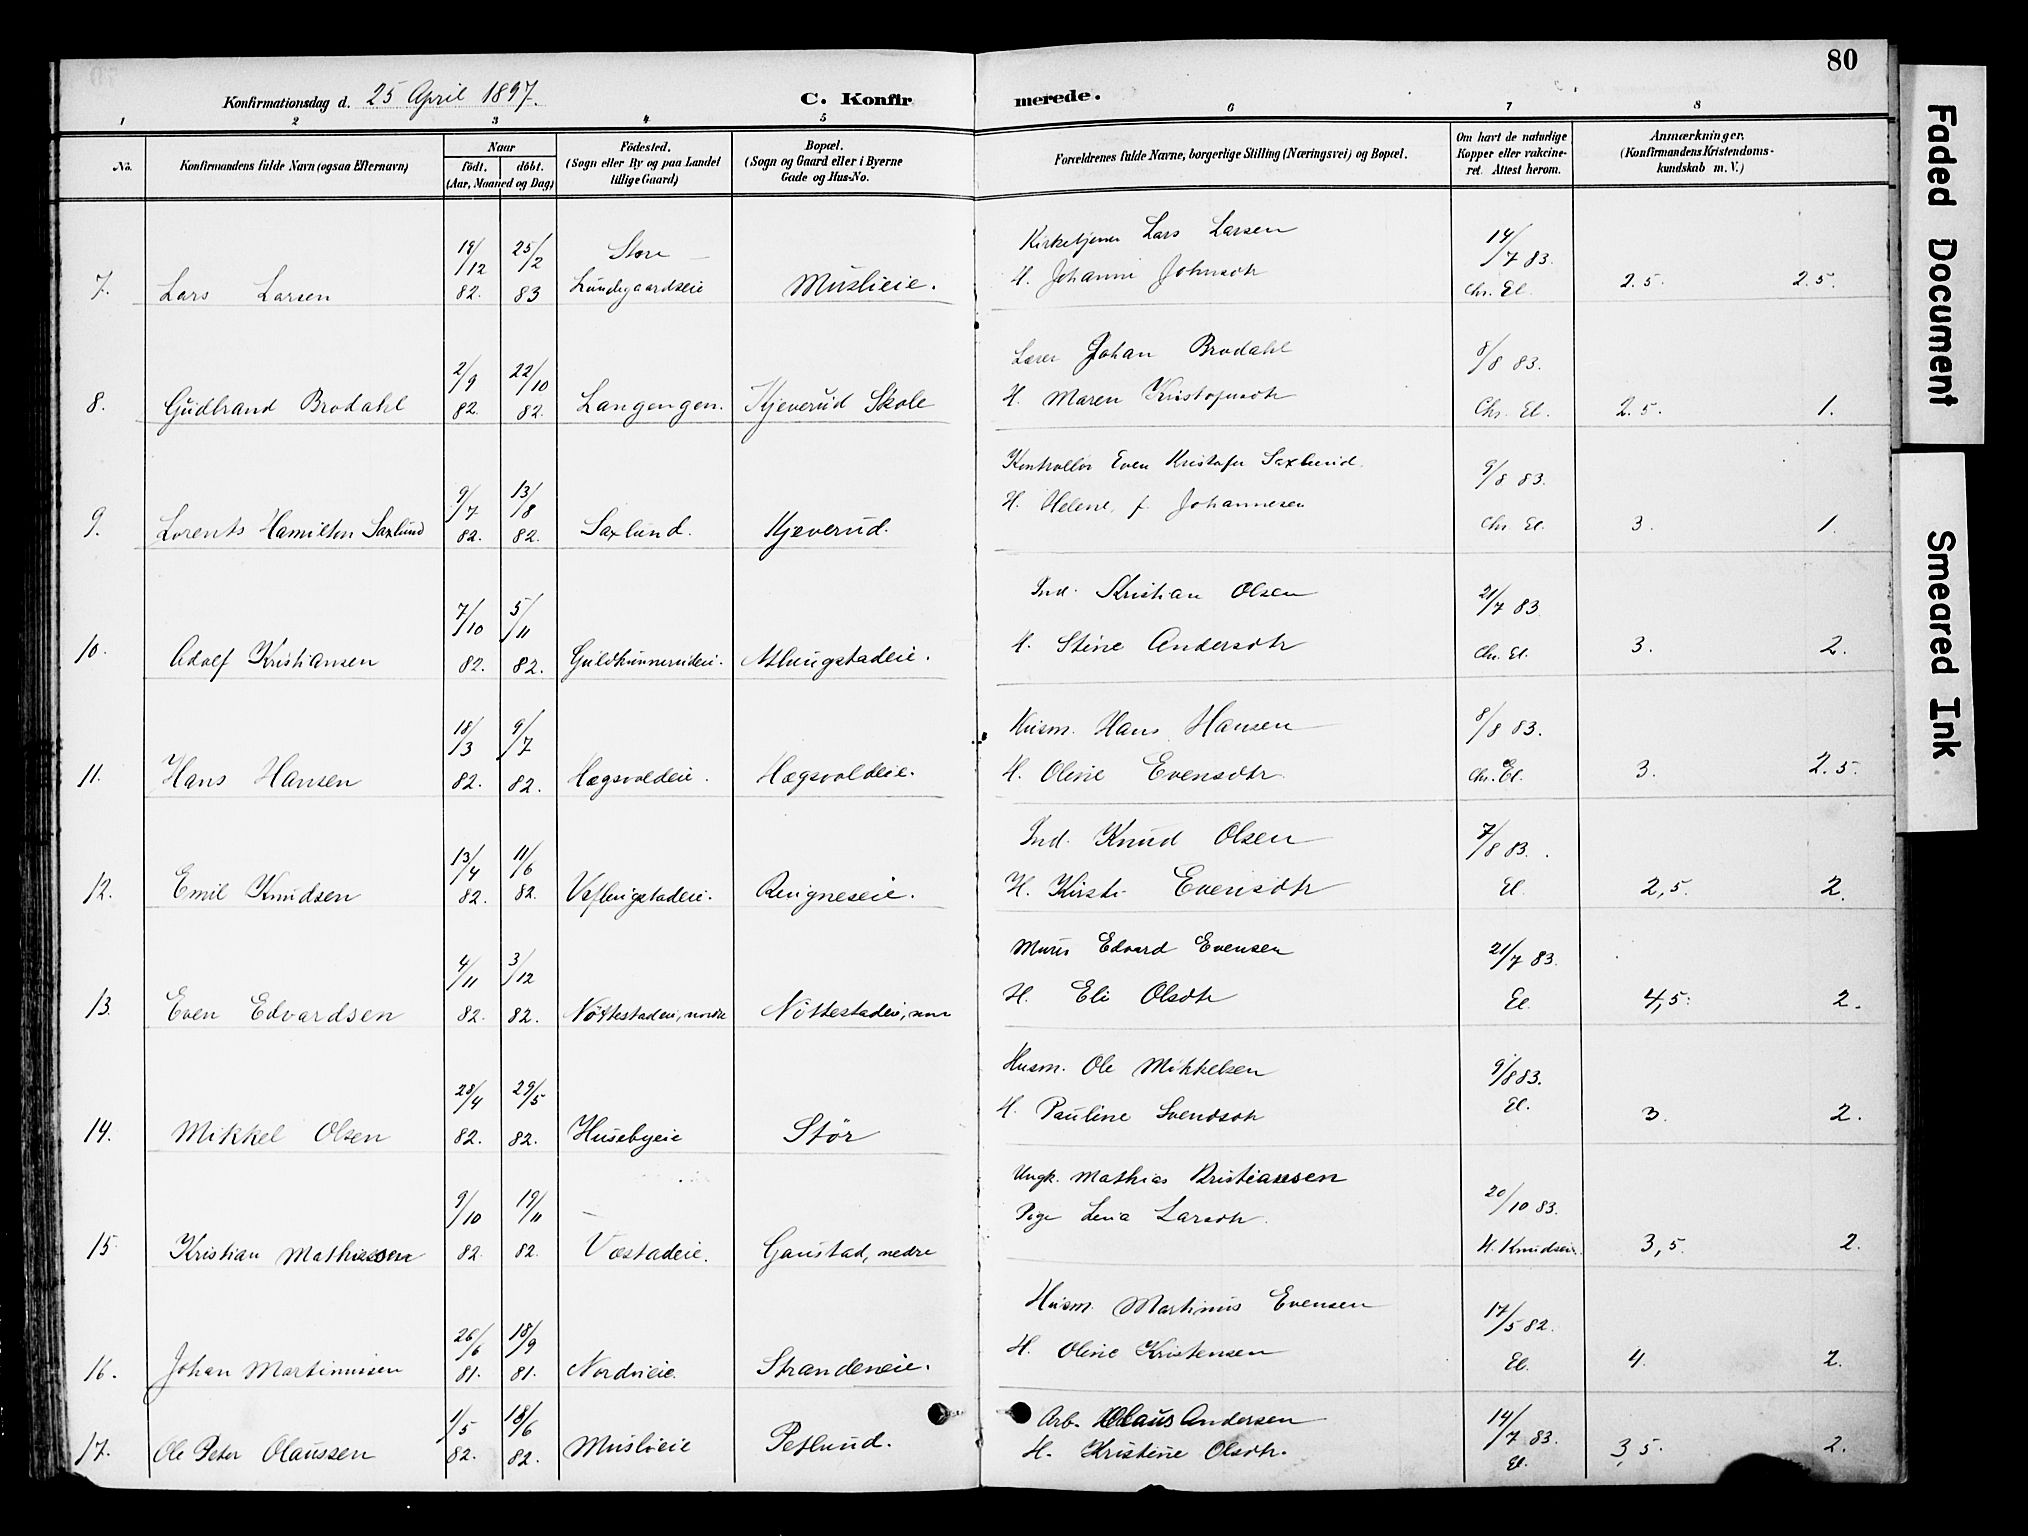 80
Konfirmationsdag d. 25 April 1897.
C. Konfir
merede.
1 2 3 4 5 6 7 8
No.
Konfirmandens fulde Navn (ogsaa Efternavn)
Naar
født.
døbt.
(Aar, Maaned og Dag)
Födested.
(Sogn eller By og paa Landet
tillige Gaard)
Bopæl.
(Sogn og Gaard eller i Byerne
Gade og Hus-No.
Forældrenes fulde Navne, borgerlige Stilling (Næringsvei) og Bopæl.
Om havt de naturlige
Kopper eller vakcine-
ret. Attest herom.
Anmærkninger.
(Konfirmandens Kristendoms-
kundskab m. V.)
19/12 25/2 Store Kirketjener Lars Larsen 14/7 83.
7. Lars Larsen 82. 83 Lundegaardseie Muslieie. H. Johanne Johnsdtr Chr. El. 2.5. 2.5.
2/9 22/10 Lærer Johan Brodahl 8/8 83.
8. Gudbrand Brodahl 82. 82. Langengen. Kjeverud Skole H. Maren Kristofersdtr Chr. El. 2.5. 1.
9/7 13/8 Kontrollør Even Kristofer Saxlund. 9/8 83.
9. Lorents Hamilton Saxlund 82. 82. Saxlund. Kjeverud. H. Helene, f. Johannesen Chr. El. 3. 1.
7/10 5/11 Ind. Kristian Olsen 21/7 83.
10. Adolf Kristiansen 82. 82. Guldhunnerudeie. Atlungstadeie. H. Stine Andersdtr Chr. El. 3. 2.
18/3 9/7 Husm. Hans Hansen 8/8 83.
11. Hans Hansen 82. 82. Hægsvoldeie. Hægsvoldeie. H. Oline Evensdtr. Chr. El. 3. 2.5.
13/4 11/6 Ind. Knud Olsen 7/8 83.
12. Emil Knudsen 82. 82. Veflingstadeie. Ringneseie. H. Kirsti Evensdtr El. 2,5. 2.
4/11 3/12 Murer Edvard Evensen 21/7 83.
13. Even Edvardsen 82. 82. Nøttestadeie, nordre Nøttestadeie, H. Eli Olsdtr El. 4,5. 2.
28/4 29/5 Husm. Ole Mikkelsen 9/8 83.
14. Mikkel Olsen 82. 82. Husebyeie Stör H. Pauline Svendsdtr El. 3. 2.
9/10 19/11 Ungk. Mathias Kristiansen 20/10 83.
Pige Lena Larsdtr.
15. Kristian Mathiassen 82. 82. Væstadeie. Gaustad, nedre H. Knudsen. 3,5. 2.
26/6 18/9 Husm. Martinus Evensen 17/5 82.
16. Johan Martinussen 81. 81. Nordvieie. Strandeneie. H. Oline Kristensen El. 4. 2.
1/5 18/6 Arb. Olaus Andersen 14/7 83.
17. Ole Peter Olaussen 82. 82. Muslieie Petlund. H. Kristine Olsdtr. El. 3,5. 2.
Faded Document
Smeared Ink